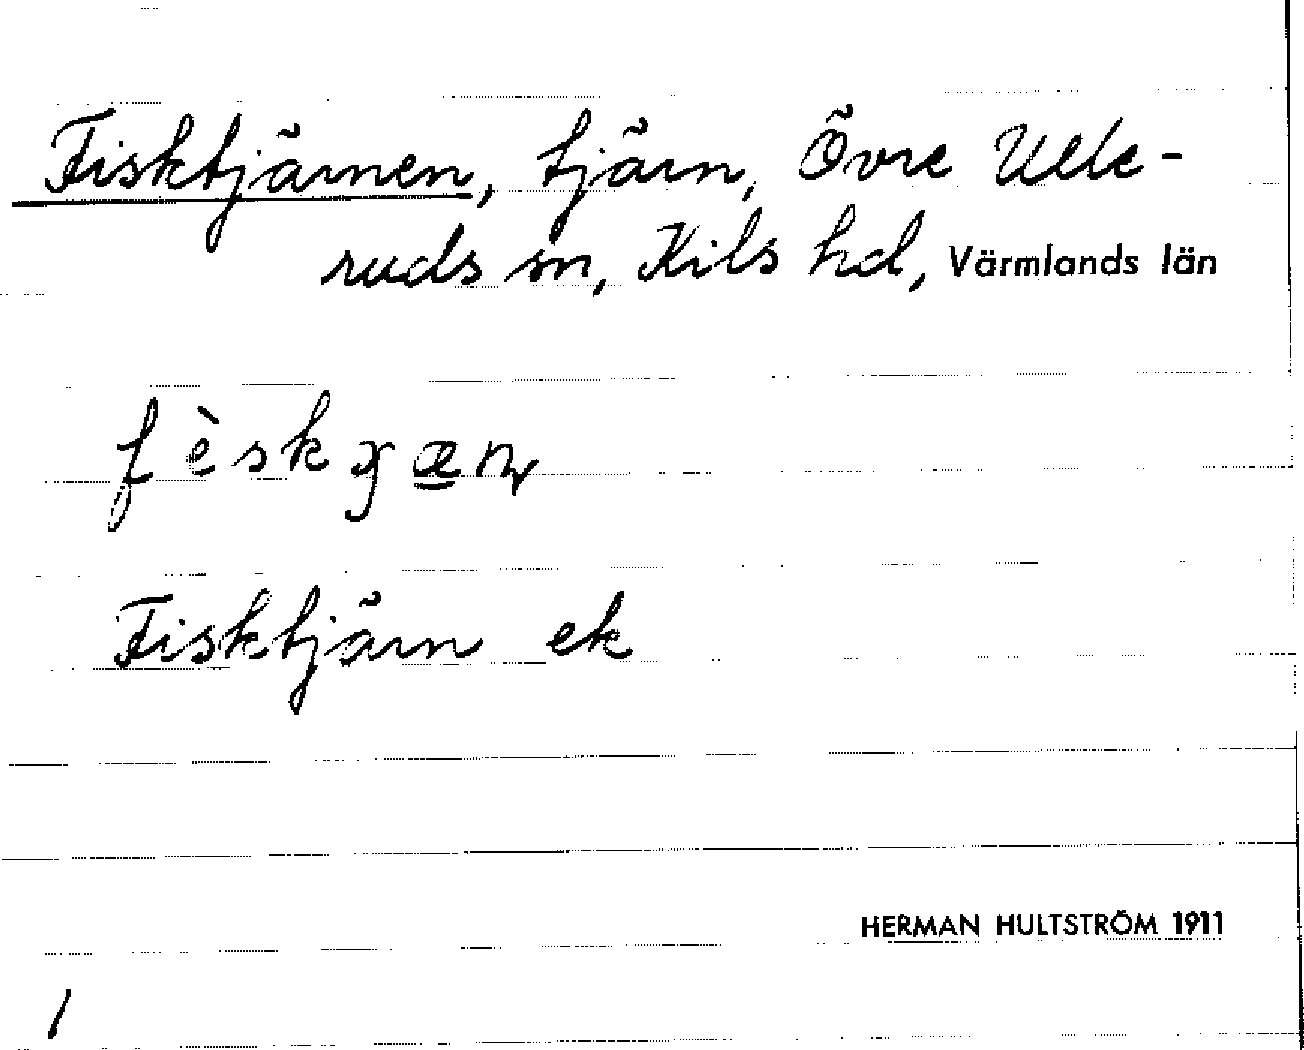 Fisktjärnen, tjärn, Övre Ulle-
ruds sn, Kils hd, Värmlands län
Fisktjärn ek
HERMAN HULTSTRÖM 1911
1